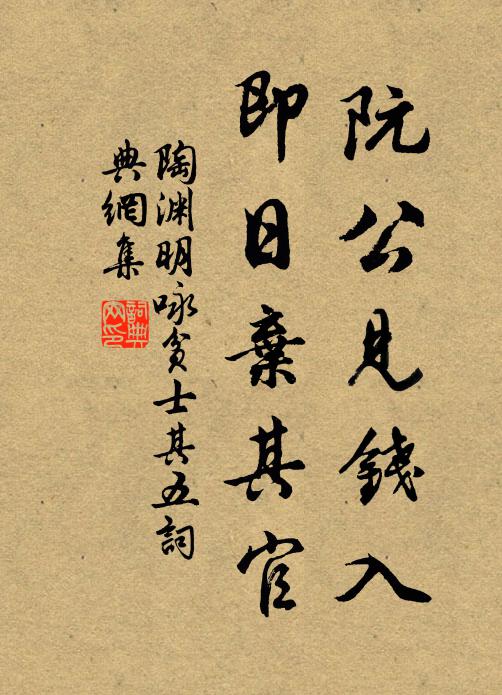 阮公見錢入
即日棄其官
陶渊明咏貧士其五詞
典網集
詞典
网印